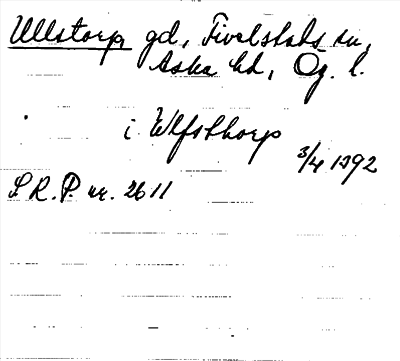 Ullstorp gd, Tivelstads sn,
Aska hd, Ög. l.
i Ulfsthorp
3/4 1392
S.R.P. nr. 2611